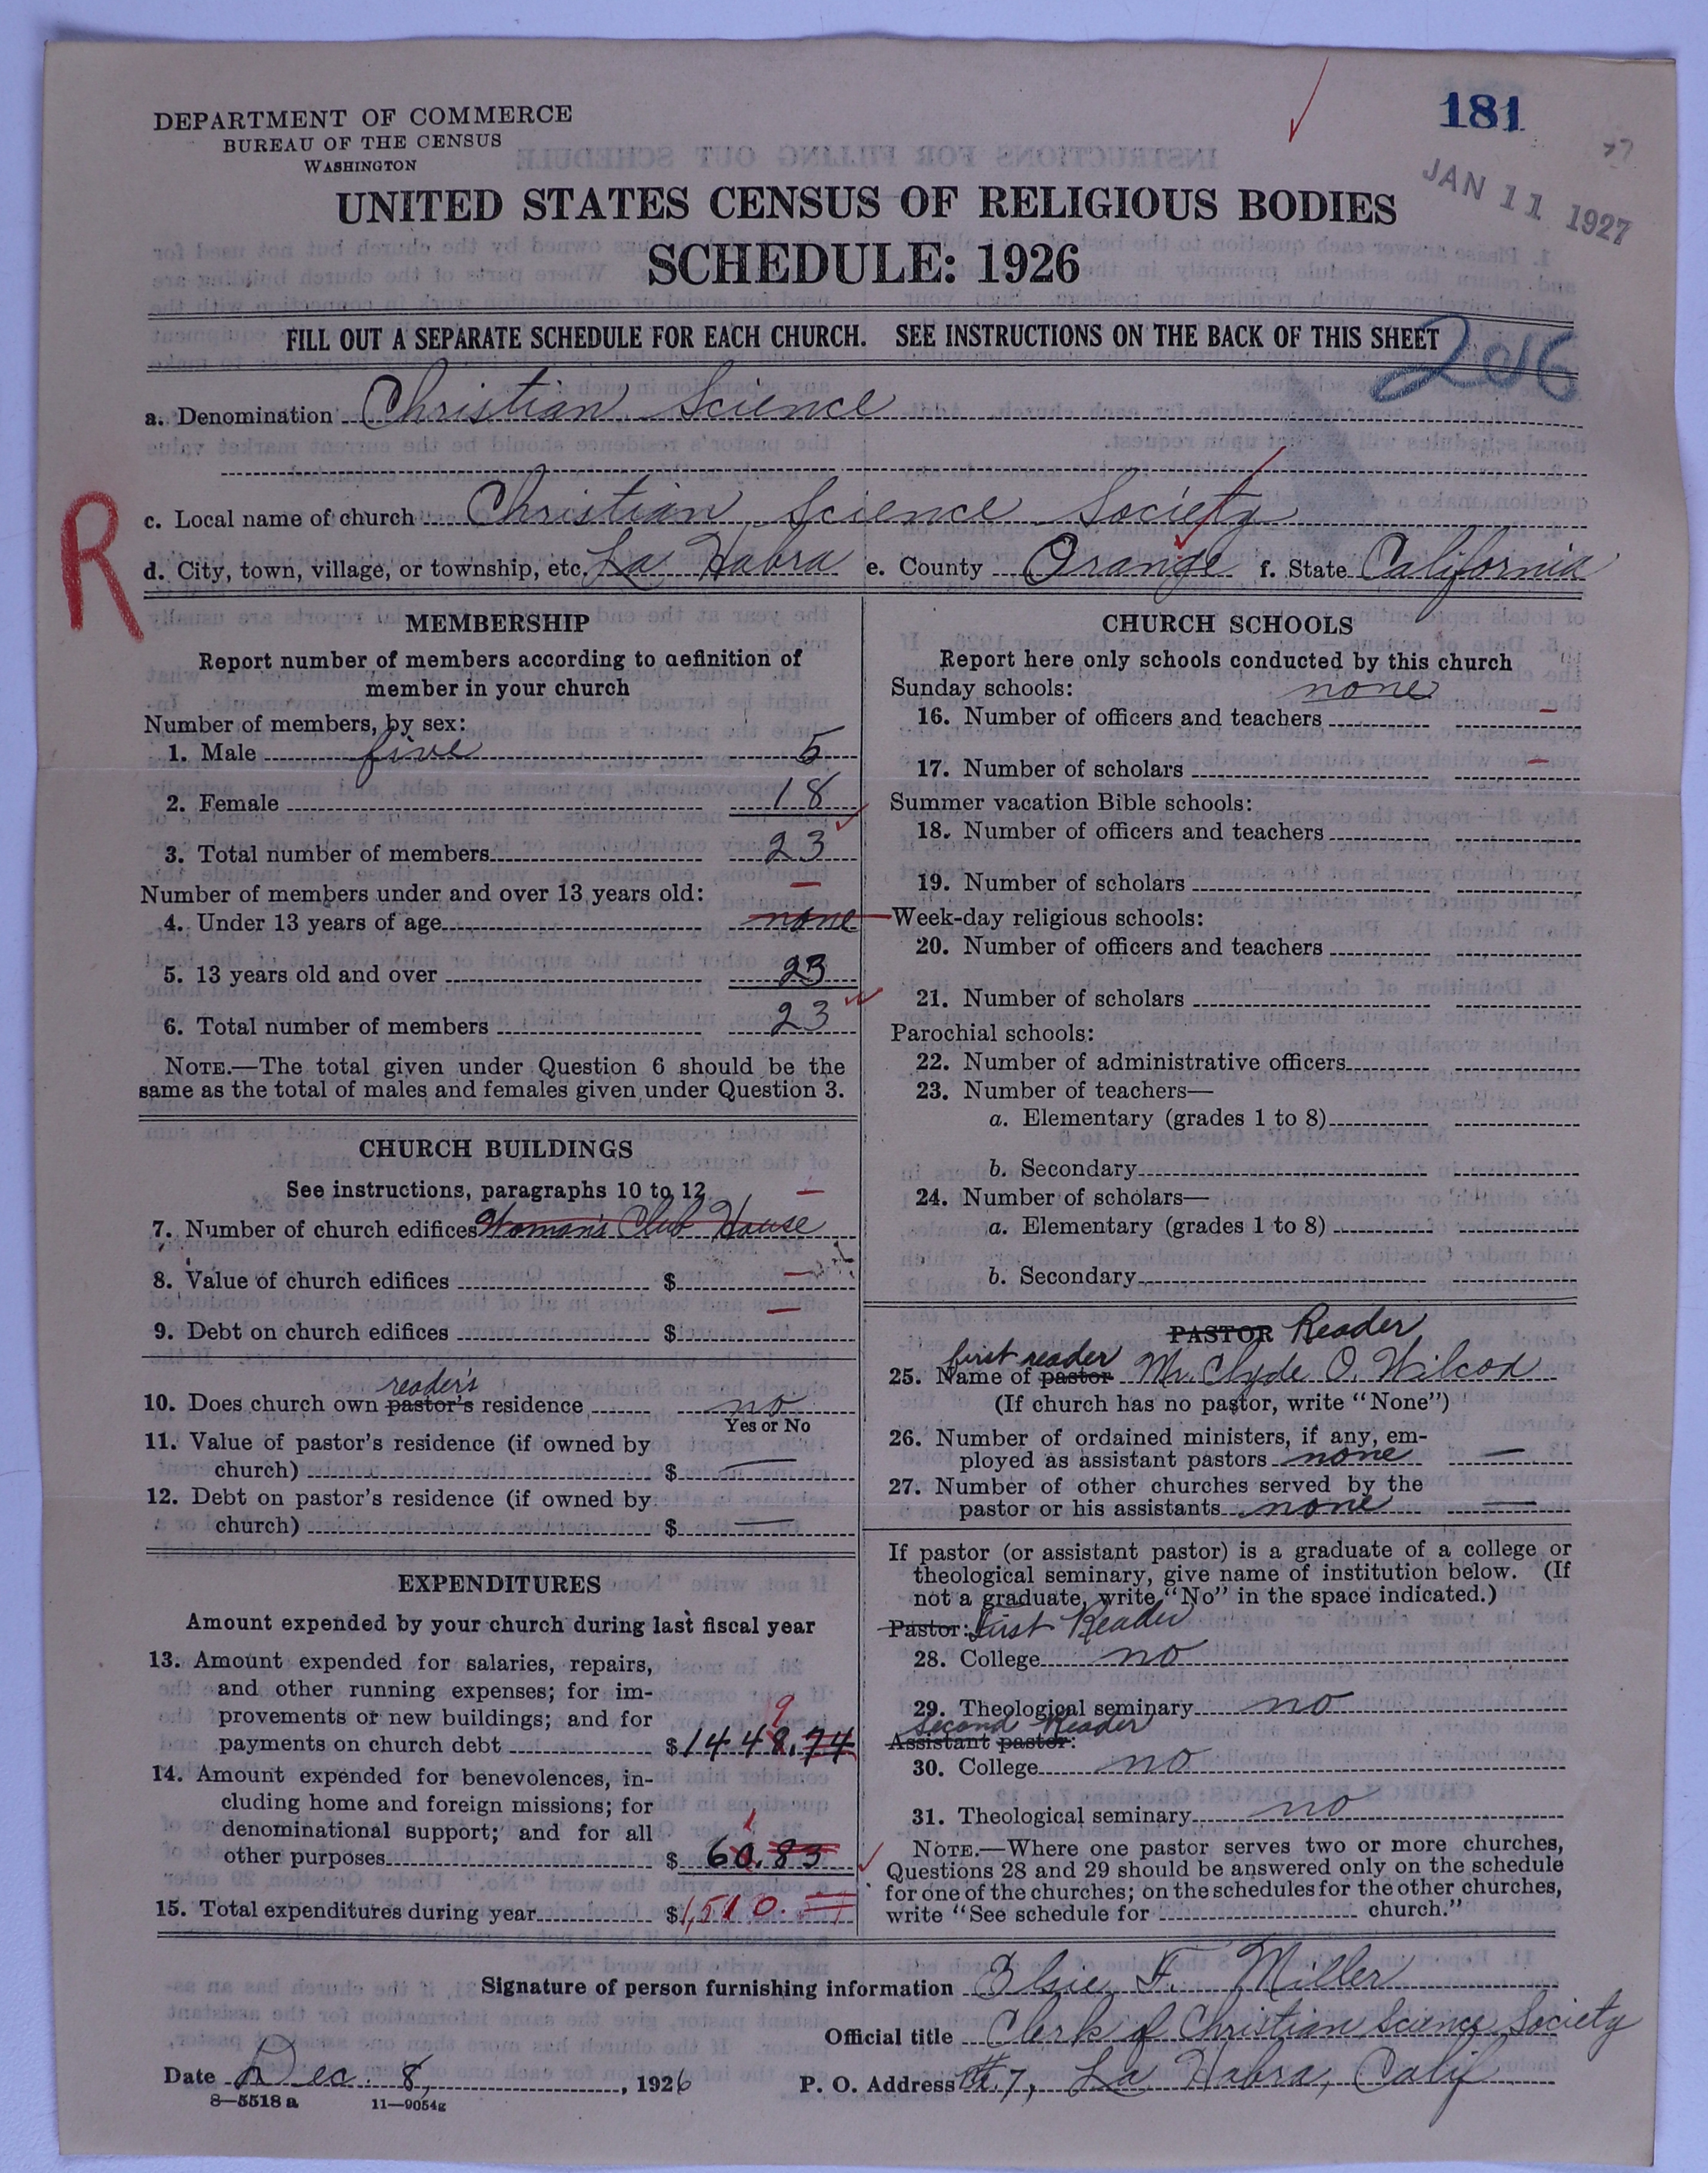 181
DEPARTMENT OF COMMERCE
BUREAU OF THE CENSUS
WASHINGTON
JAN 11 1927
UNITED STATES CENSUS OF RELIGIOUS BODIES
SCHEDULE: 1926
FILL OUT A SEPARATE SCHEDULE FOR EACH CHURCH. SEE INSTRUCTIONS ON THE BACK OF THIS SHEET
206
a. Denomination Christian Science
R
c. Local name of church Christian Science Society
d. City, town, village, or township, etc. La Habra e. County Orange f. State California
MEMBERSHIP
Report number of members according to definition of
member in your church
Number of members, by sex:
1. Male five 5
2. Female 18
3. Total number of members 23
Number of members under and over 13 years old: —
4. Under 13 years of age none
5. 13 years old and over 23
6. Total number of members 23
NOTE.—The total given under Question 6 should be the
same as the total of males and females given under Question 3.
CHURCH BUILDINGS
See instructions, paragraphs 10 to 12 —
7. Number of church edifices Woman's Club House
8. Value of church edifices $ —
9. Debt on church edifices $ —
reader's
10. Does church own pastor's residence no
Yes or No
11. Value of pastor's residence (if owned by
church) $ —
12. Debt on pastor's residence (if owned by
church) $ —
EXPENDITURES
Amount expended by your church during last fiscal year
13. Amount expended for salaries, repairs,
and other running expenses; for im-
provements or new buildings; and for 9
payments on church debt $1448.74
14. Amount expended for benevolences, in-
cluding home and foreign missions; for
denominational support; and for all 1
other purposes $ 60.83
15. Total expenditures during year $1,510.
CHURCH SCHOOLS
Report here only schools conducted by this church
Sunday schools: none
16. Number of officers and teachers —
17. Number of scholars —
Summer vacation Bible schools:
18. Number of officers and teachers
19. Number of scholars
Week-day religious schools:
20. Number of officers and teachers
21. Number of scholars
Parochial schools:
22. Number of administrative officers
23. Number of teachers—
a. Elementary (grades 1 to 8)
b. Secondary
24. Number of scholars—
a. Elementary (grades 1 to 8)
b. Secondary
PASTOR Reader
first reader
25. Name of pastor Mr. Clyde O. Wilcox
(If church has no pastor, write "None")
26. Number of ordained ministers, if any, em-
ployed as assistant pastors none —
27. Number of other churches served by the
pastor or his assistants none —
If pastor (or assistant pastor) is a graduate of a college or
theological seminary, give name of institution below. (If
not a graduate, write "No" in the space indicated.)
Pastor: First Reader
28. College no
29. Theological seminary no
Second Reader
Assistant pastor:
30. College no
31. Theological seminary no
NOTE.—Where one pastor serves two or more churches,
Questions 28 and 29 should be answered only on the schedule
for one of the churches; on the schedules for the other churches,
write "See schedule for church."
Signature of person furnishing information Elsie F. Miller
Official title Clerk of Christian Science Society
Date Dec. 8, 1926 P. O. Address 7, La Habra, Calif
8—5518 a 11—9054g